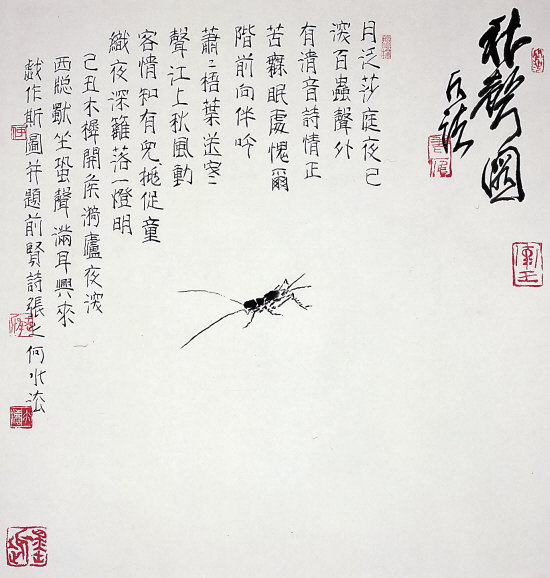 秋聲圖
月泛莎庭夜已
深百蟲聲外
有清音詩情正
苦無眠處愧爾
階前向伴吟
蕭〻梧葉送寒〻
聲江上秋風動
客情知有兒挑促童
織夜深籬落一燈明
己丑木樨開矦漪廬夜深
西牕獨坐蛩聲滿耳興來
戲作斯圖并題前賢詩張之何水法